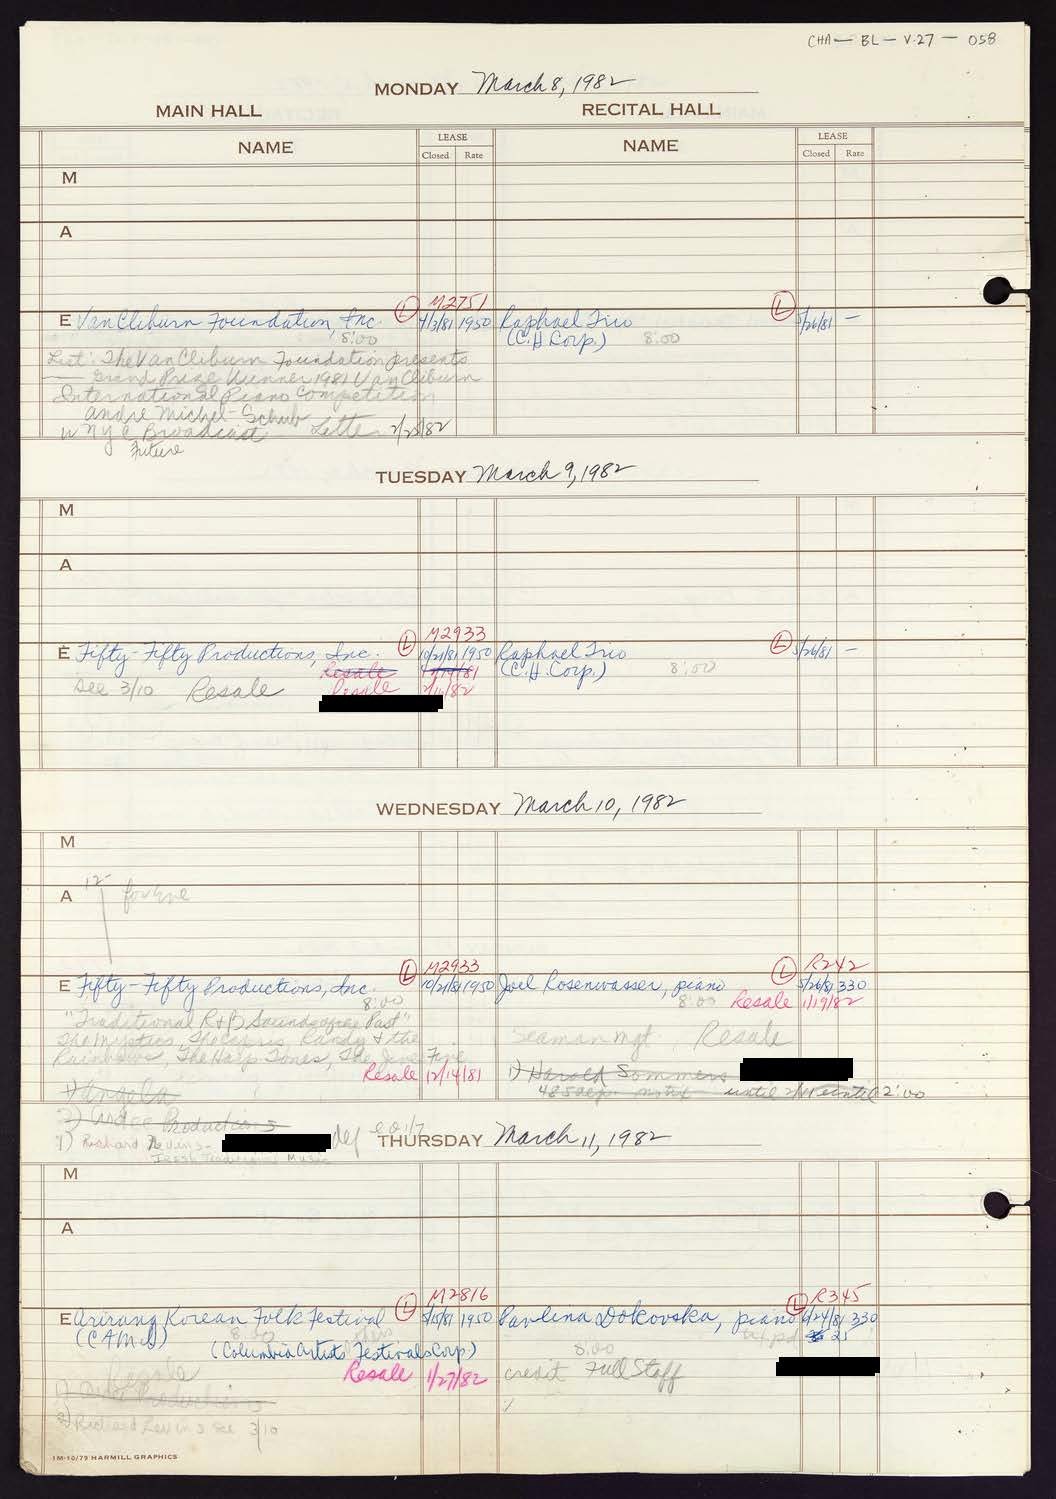 CHA- BL- V.27 - 058
MONDAY March 8, 1982
MAIN HALL RECITAL HALL
NAME LEASE NAME LEASE
Closed Rate Closed Rate
M
A
M2751
E Van Cliburn Foundation, Inc. L 4/3/81 1950 Raphael Trio L 5/26/81 -
8:00 (C.H. Corp.) 8:00
List: The Van Cliburn Foundation presents
Grand Prize Winner 1981 Van Cliburn
International Piano Competition
Andre Michel-Schub
WNYC Broadcast Letter 2/25/82
Future
TUESDAY March 9, 1982
M
A
M2933
E Fifty-Fifty Productions, Inc. L 10/21/81 1950 Raphael Trio L 5/26/81 -
Resale (C.H. Corp.) 8:00
See 3/10 Resale Resale 2/11/82
WEDNESDAY March 10, 1982
M
12-
A for Eve
M2933 R242
E Fifty-Fifty Productions, Inc. L 10/21/81 1950 Joel Rosenwasser, piano L 5/26/81 330
8:00 8:00 Resale 1/19/82
"Traditional R+B Sounds of the Past"
The Mystics, The Capris, Randy & the Seaman Mgt. Resale
Rainbows, The Harp Tones, The Jive Five
Resale 12/14/81 1) Harold Sommers
1) Angela until 2:00
2) Ardee Productions
1) Richard Nevins-
Irish Traditional Music
THURSDAY March 11, 1982
M
A
M2816 R345
E Arirang Korean Folk Festival L 5/15/81 1950 Pavlina Dokovska, piano L 9/24/81 330
(CAMI) 8:00 21
(Columbia Artists Festivals Corp) 8:00
Resale Resale 1/27/82 credit Full Staff
1) Productions
2) Richard Nevins see 3/10
1M-10/79 HARMILL GRAPHICS